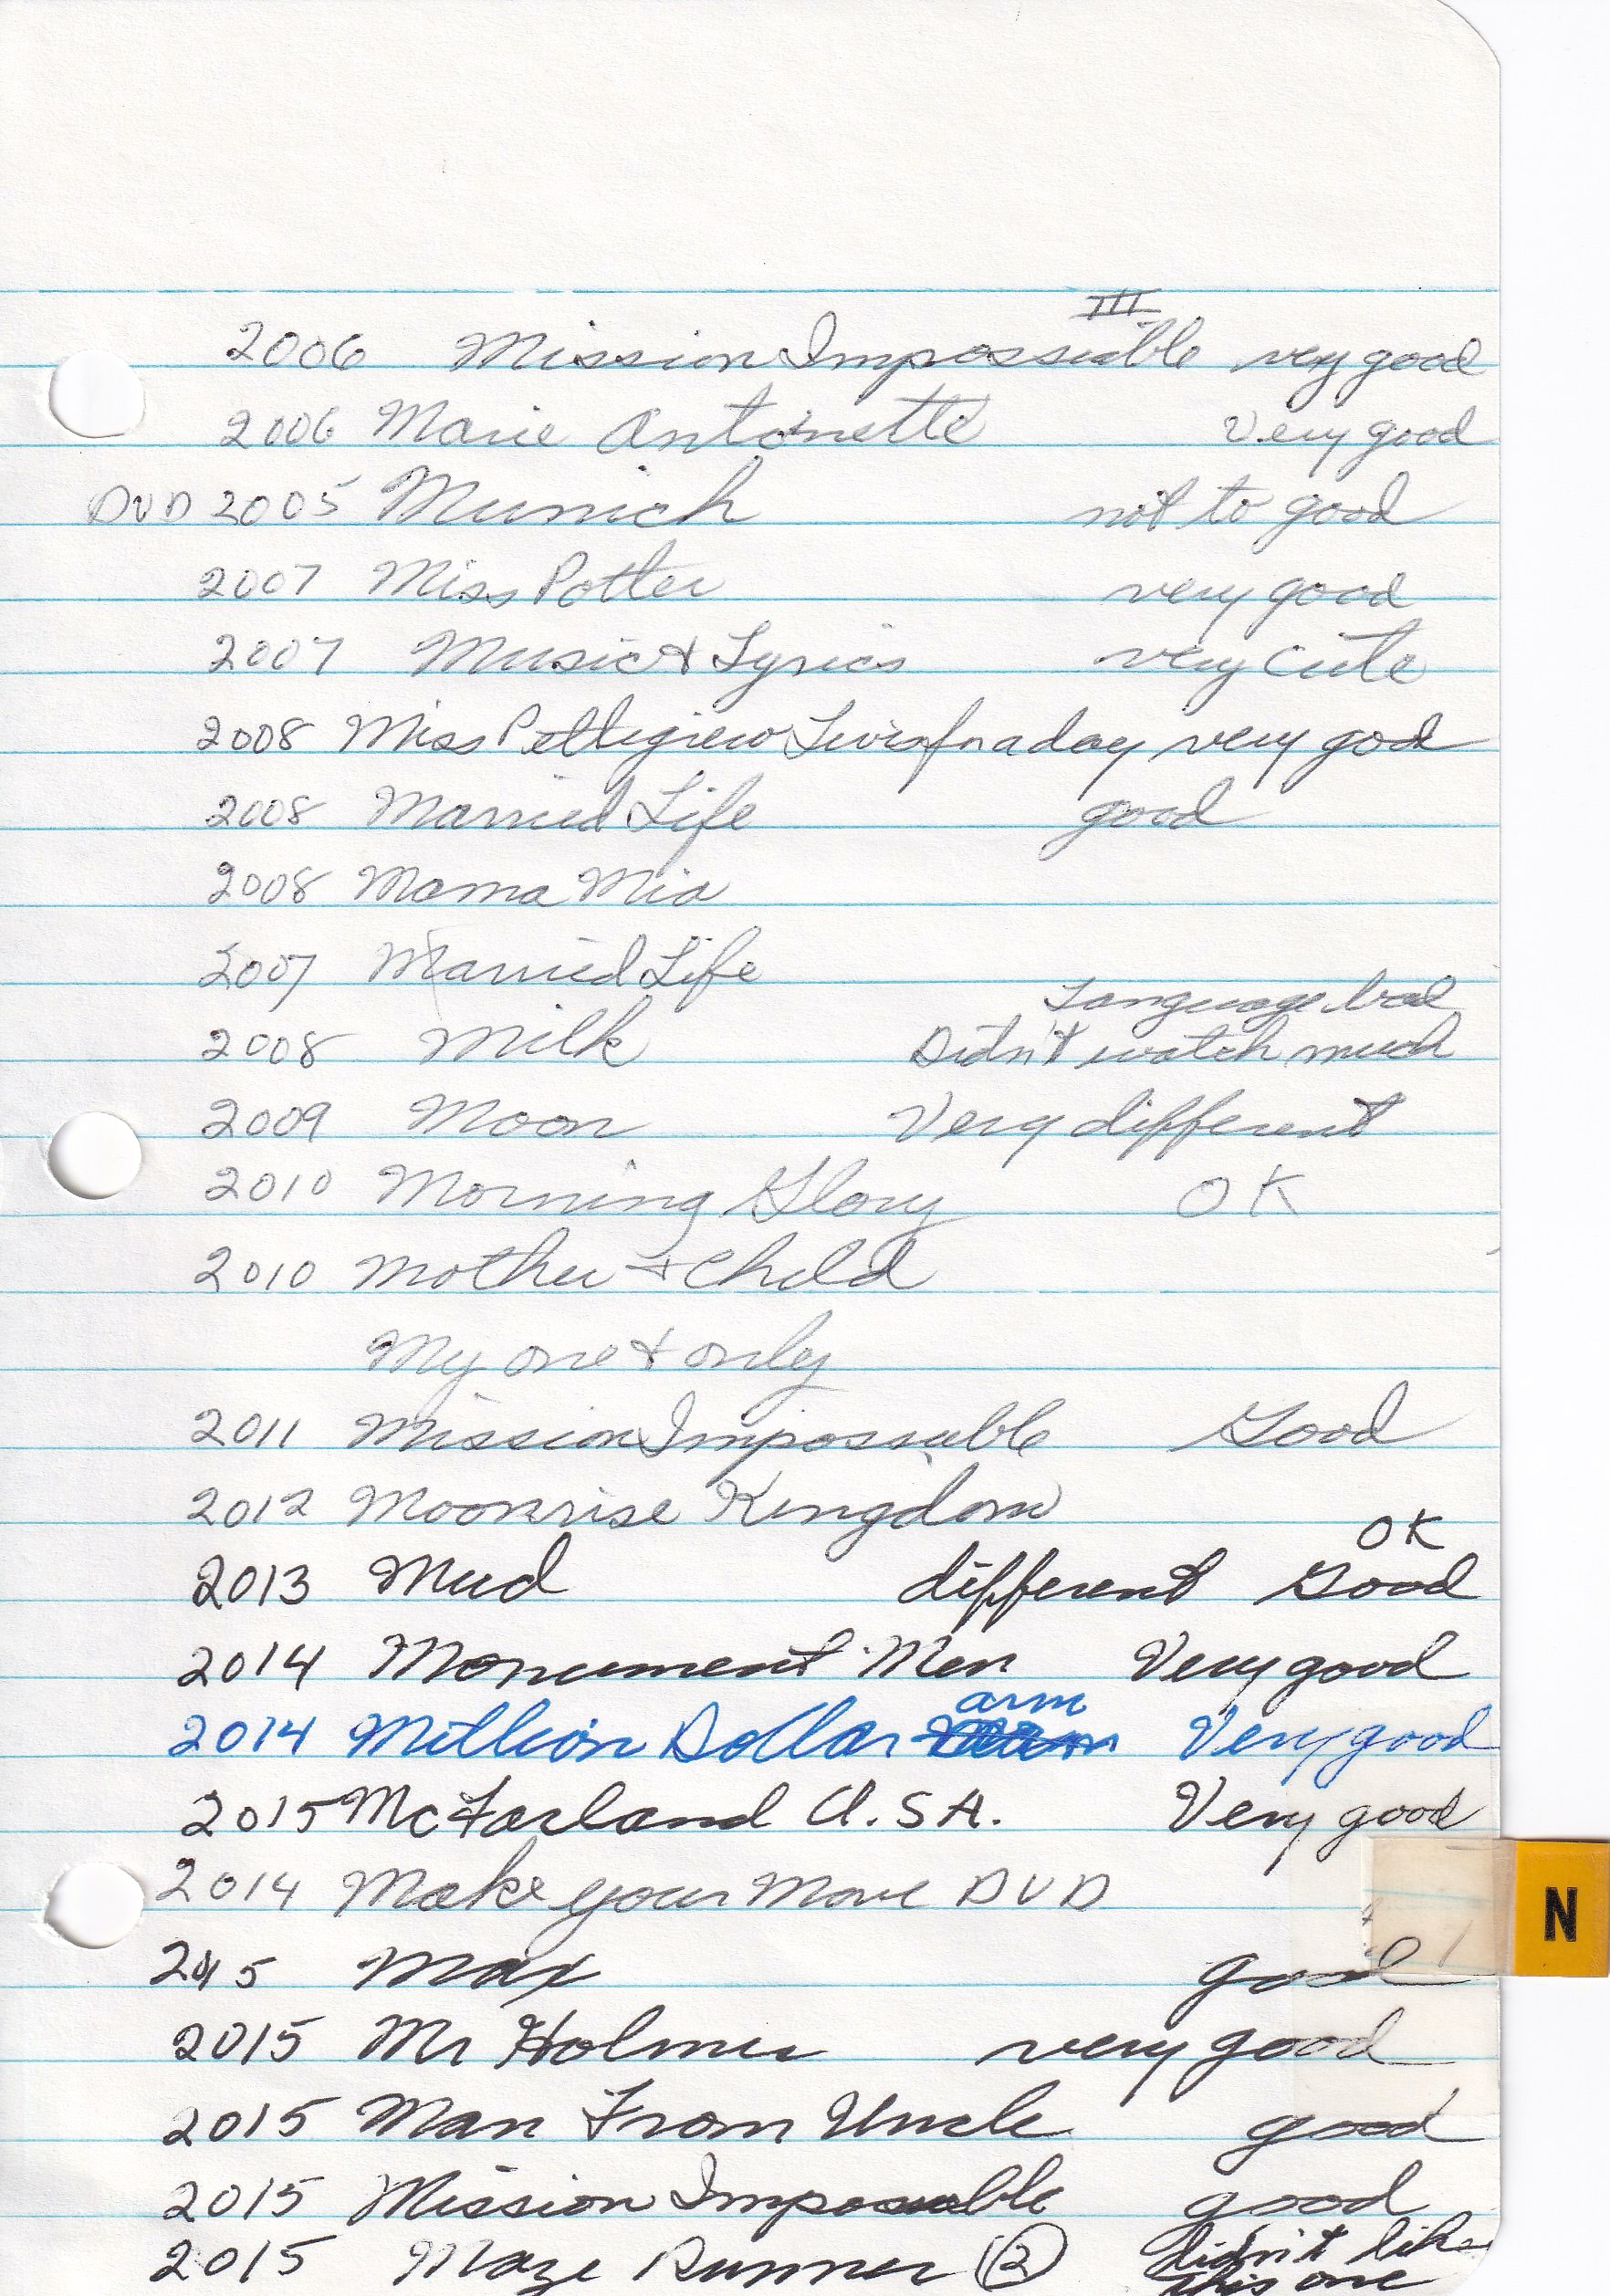 III
2006 Mission Impossible very good
2006 Marie Antoinette Very good
DVD 2005 Munich not to good
2007 Miss Potter very good
2007 Music & Lyrics very cute
2008 Miss Pettigrew Lives for a day very good
2008 Married Life good
2008 Mama Mia
2007 Married Life
Language bad
2008 Milk Didn't watch much
2009 Moon Very different
2010 Morning Glory OK
2010 Mother & Child
My one & only
2011 Mission Impossible Good
2012 Moonrise Kingdom
OK
2013 Mud different Good
2014 Monument Men Very good
arm
2014 Million Dollar Very good
2015 McFarland U.S.A. Very good
2014 Make your Move DVD
N
2015 Max good
2015 Mr Holmes very good
2015 Man From Uncle good
2015 Mission Impossible good
2015 Maze Runner (2) didn't like
this one